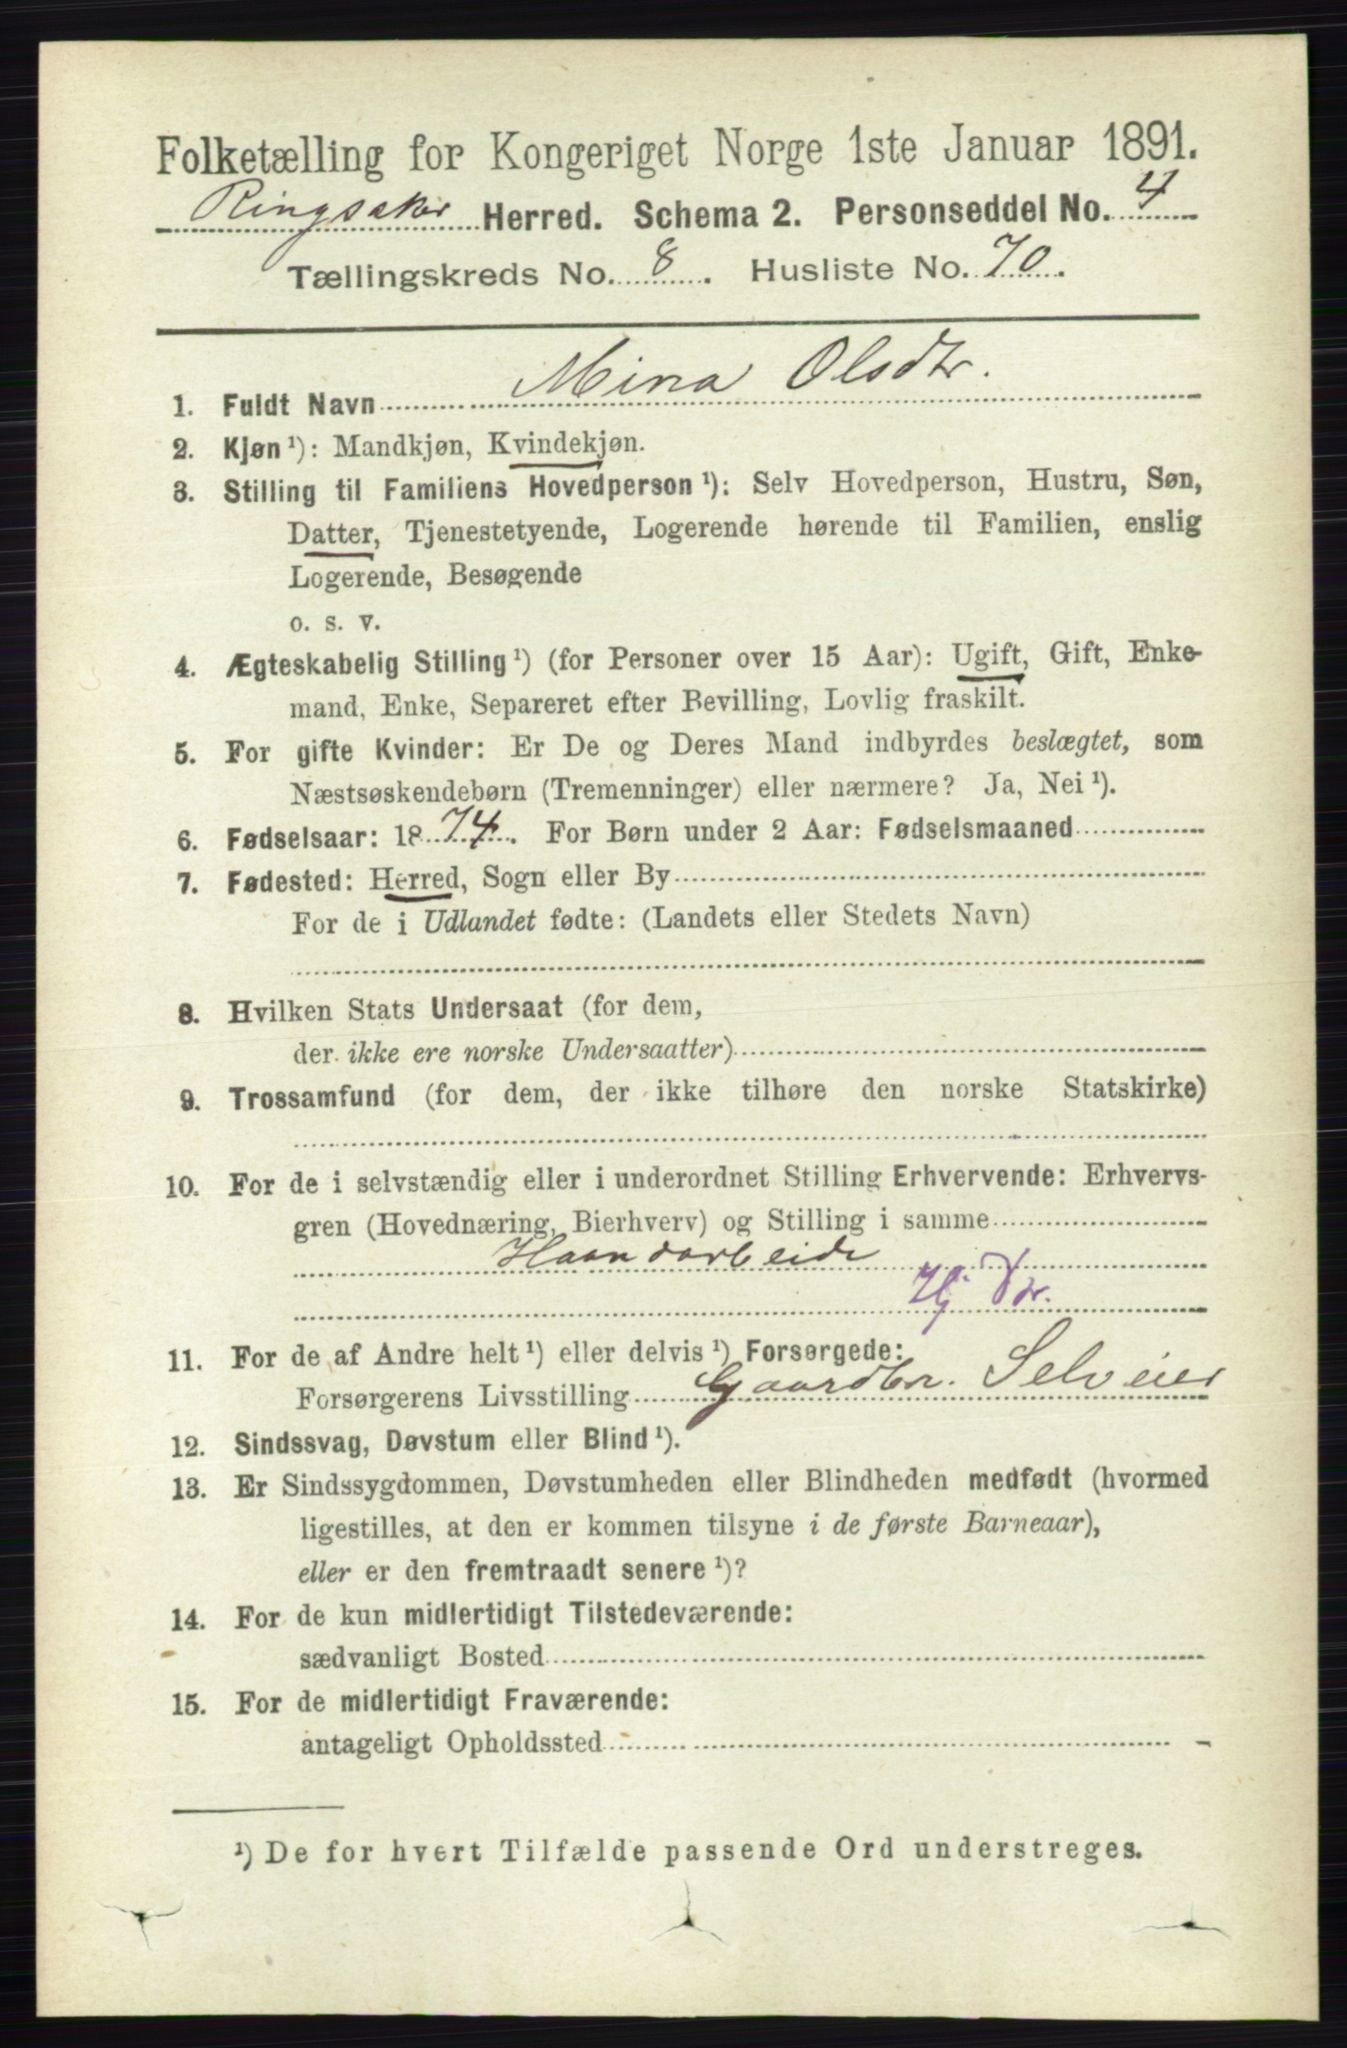 Folketælling for Kongeriget Norge 1ste Januar 1891.
Ringsaker Herred. Schema 2. Personseddel No. 4
Tællingskreds No. 8. Husliste No. 70.
1. Fuldt Navn Mina Olsdtr.
2. Kjøn ¹): Mandkjøn, Kvindekjøn.
3. Stilling til Familiens Hovedperson ¹): Selv Hovedperson, Hustru, Søn,
Datter, Tjenestetyende, Logerende hørende til Familien, enslig
Logerende, Besøgende
o. s. v.
4. Ægteskabelig Stilling ¹) (for Personer over 15 Aar): Ugift, Gift, Enke-
mand, Enke, Separeret efter Bevilling, Lovlig fraskilt.
5. For gifte Kvinder: Er De og Deres Mand indbyrdes beslægtet, som
Næstsøskendebørn (Tremenninger) eller nærmere? Ja, Nei ¹).
6. Fødselsaar: 1874. For Børn under 2 Aar: Fødselsmaaned
7. Fødested: Herred, Sogn eller By
For de i Udlandet fødte: (Landets eller Stedets Navn)
8. Hvilken Stats Undersaat (for dem,
der ikke ere norske Undersaatter)
9. Trossamfund (for dem, der ikke tilhøre den norske Statskirke)
10. For de i selvstændig eller i underordnet Stilling Erhvervende: Erhvervs-
gren (Hovednæring, Bierhverv) og Stilling i samme
Haandarbeide
Hj
11. For de af Andre helt ¹) eller delvis ¹) Forsørgede:
Forsørgerens Livsstilling Gaardbr. Selveier
12. Sindssvag, Døvstum eller Blind ¹).
13. Er Sindssygdommen, Døvstumheden eller Blindheden medfødt (hvormed
ligestilles, at den er kommen tilsyne i de første Barneaar),
eller er den fremtraadt senere ¹)?
14. For de kun midlertidigt Tilstedeværende:
sædvanligt Bosted
15. For de midlertidigt Fraværende:
antageligt Opholdssted
¹) De for hvert Tilfælde passende Ord understreges.